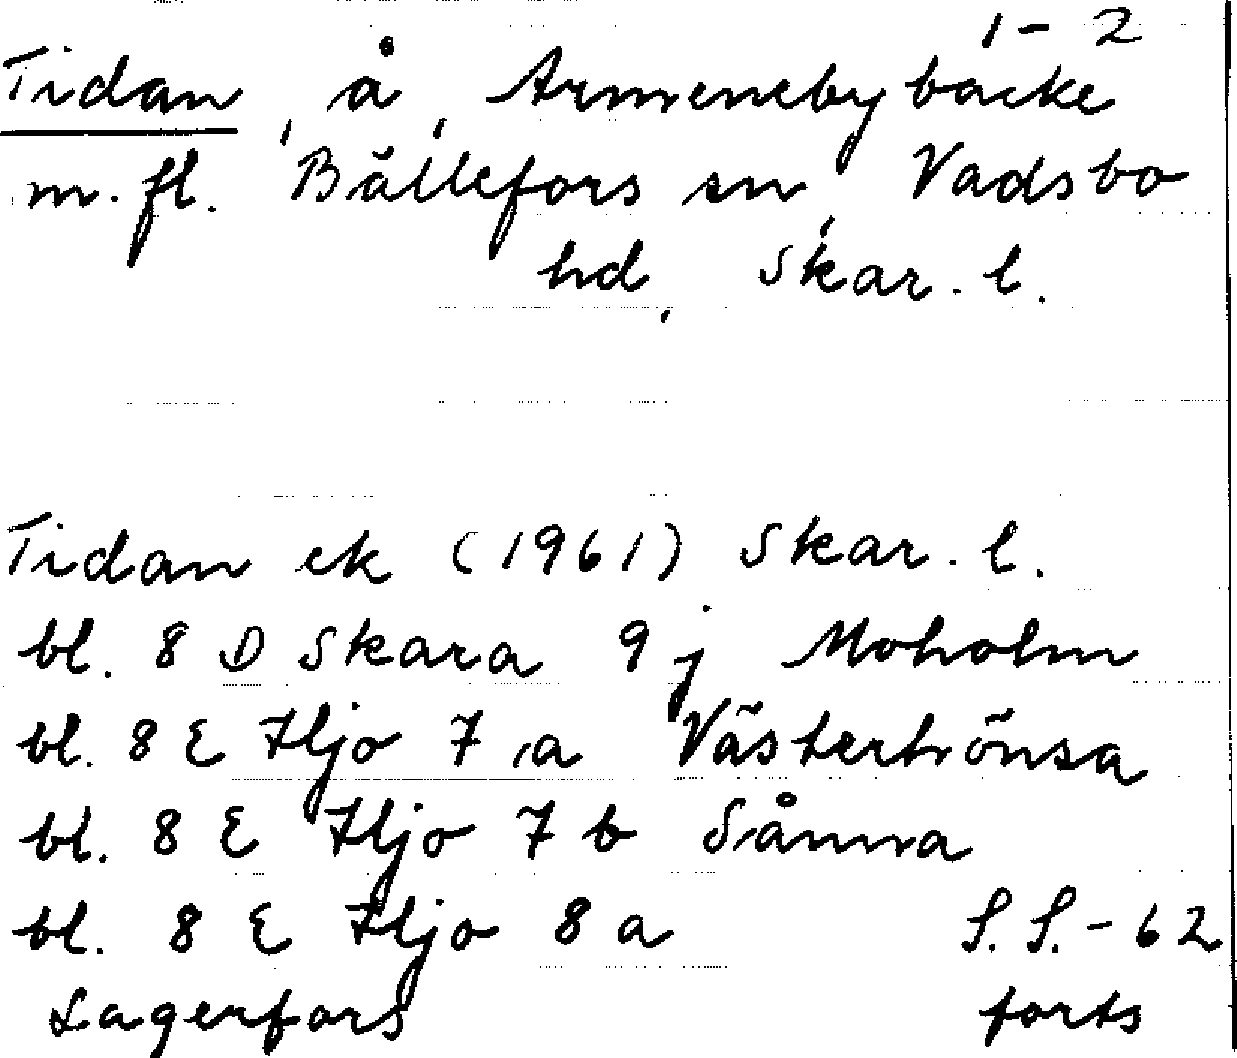 1-2
Tidan, å, Armenebybacke
m. fl. Bällefors sn, Vadsbo
hd, Skar. l.
Tidan ek (1961) Skar. l.
bl. 8 D Skara 9 j Moholm
bl. 8 E Hjo 7 a Västerhönsa
bl. 8 E Hjo 7 b Sånna
bl. 8 E Hjo 8 a S. S. - 62
Lagerfors forts